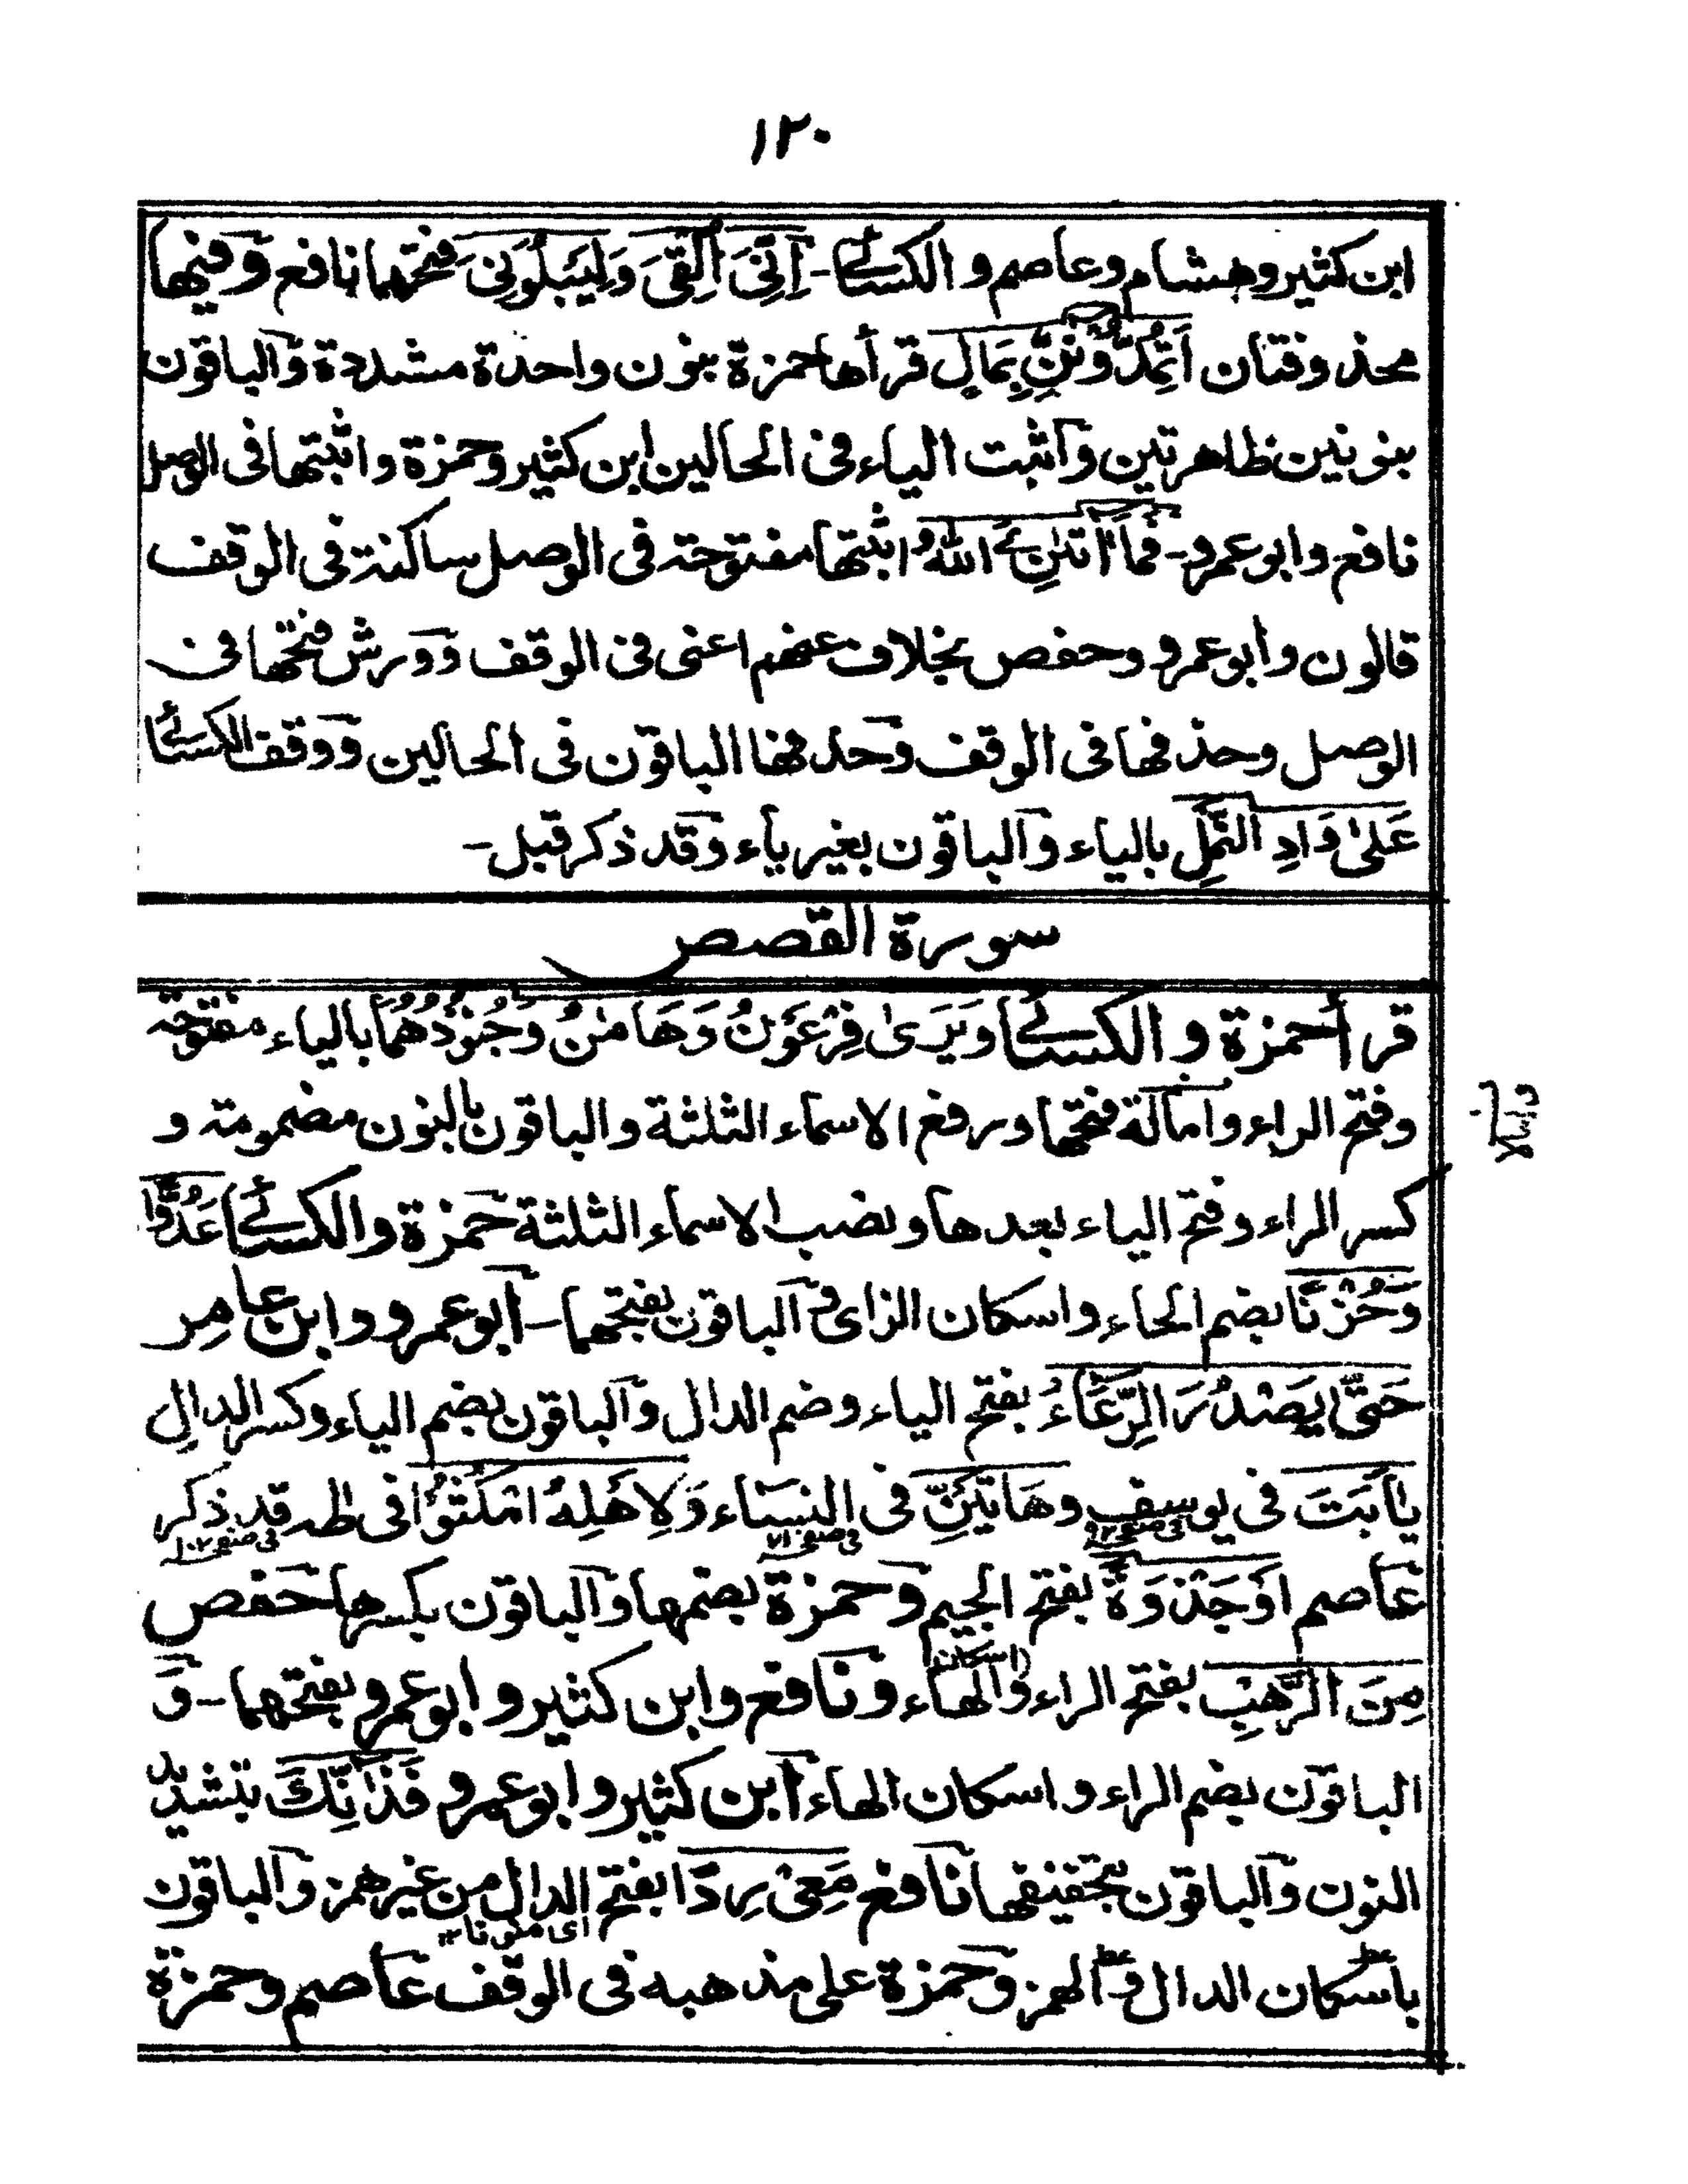 ١٢٠
ابن كثير وهشام وعاصم و الكسائے - اِنِّیَ اُلْقِیَ وَلِيَبْلُوَنِیَ فتحهما نافع وفيها
محذ وفتان اَتُمِدُّوْنَنِّ بِمَالٍ قرأها حمزة بنون واحدة مشددة والباقون
بنونين ظاهرتين وأثبت الياء فی الحالين ابن كثير وحمزة واثبتها فی الوصل
نافع وابو عمرو - فَمَا اٰتٰنِۦَ اللّٰهُ اثبتها مفتوحة فی الوصل ساكنة فی الوقف
قالون وابو عمرو وحفص بخلاف عنهم اعنى فی الوقف وورش فتحها فی
الوصل وحذفها فی الوقف وحذفها الباقون فی الحالين ووقف الكسائے
عَلٰی وَادِ النَّمْلِ بالياء والباقون بغير ياء وقد ذكر قبل -
سورة القصص
قرأ حمزة و الكسائے وَيَرٰی فِرْعَوْنُ وَهَامٰنُ وَجُنُوْدُهُمَا بالياء مفتوحة
وفتح الراء وامالة فتحها ورفع الاسماء الثلثة والباقون بالنون مضمومة و
كسر الراء وفتح الياء بعدها ونصب الاسماء الثلثة حمزة والكسائے عَدُوًّا
وَّحُزْنًا بضم الحاء واسكان الزای والباقون بفتحهما - ابو عمرو وابن عامر
حَتّٰی يَصْدُرَ الرِّعَاءُ بفتح الياء وضم الدال والباقون بضم الياء وكسر الدال
يٰاَبَتَ فی يوسف وهَاتَيْنِّ فی النساء وَلِاَهْلِهُ امْكُثُوْا فی طه قد ذكر
فی صفحه ٩٢ فی صفحه ٧١ فی صفحه ١٠٢
عاصم اَوْ جَذْوَةٍ بفتح الجيم وحمزة بضمها والباقون بكسرها حفص
مِنَ الرَّهْبِ بفتح الراء واسكان الهاء ونافع وابن كثير وابو عمرو بفتحهما - و
الباقون بضم الراء واسكان الهاء ابن كثير وابو عمرو فَذٰانِّكَ بتشديد
النون والباقون بتخفيفها نافع مَعِیَ رِدًا بفتح الدال من غير همز والباقون
ای منونا ١٢
باسكان الدال والهمز وحمزة علی مذهبه فی الوقف عاصم وحمزة